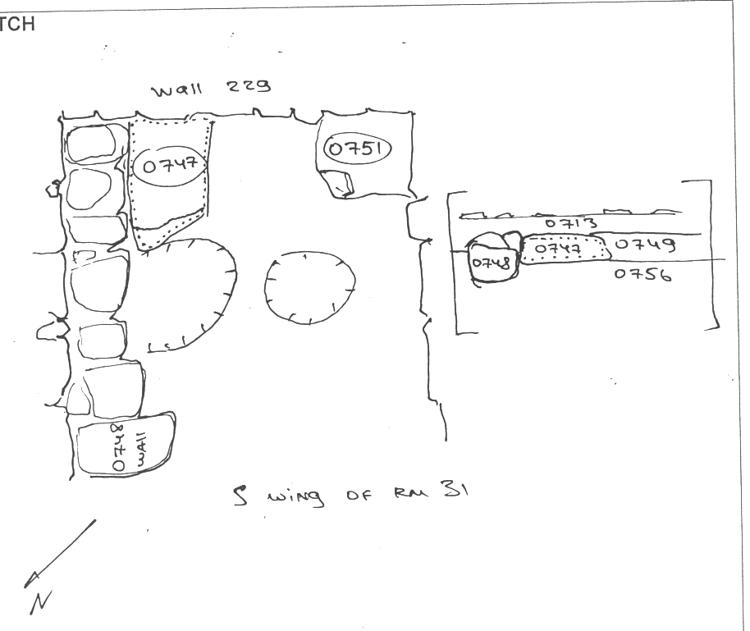 TCH
Wall 229
0747
0751
0713
0748
0747
0749
0756
0748
WALL
S WING OF RM 31
N